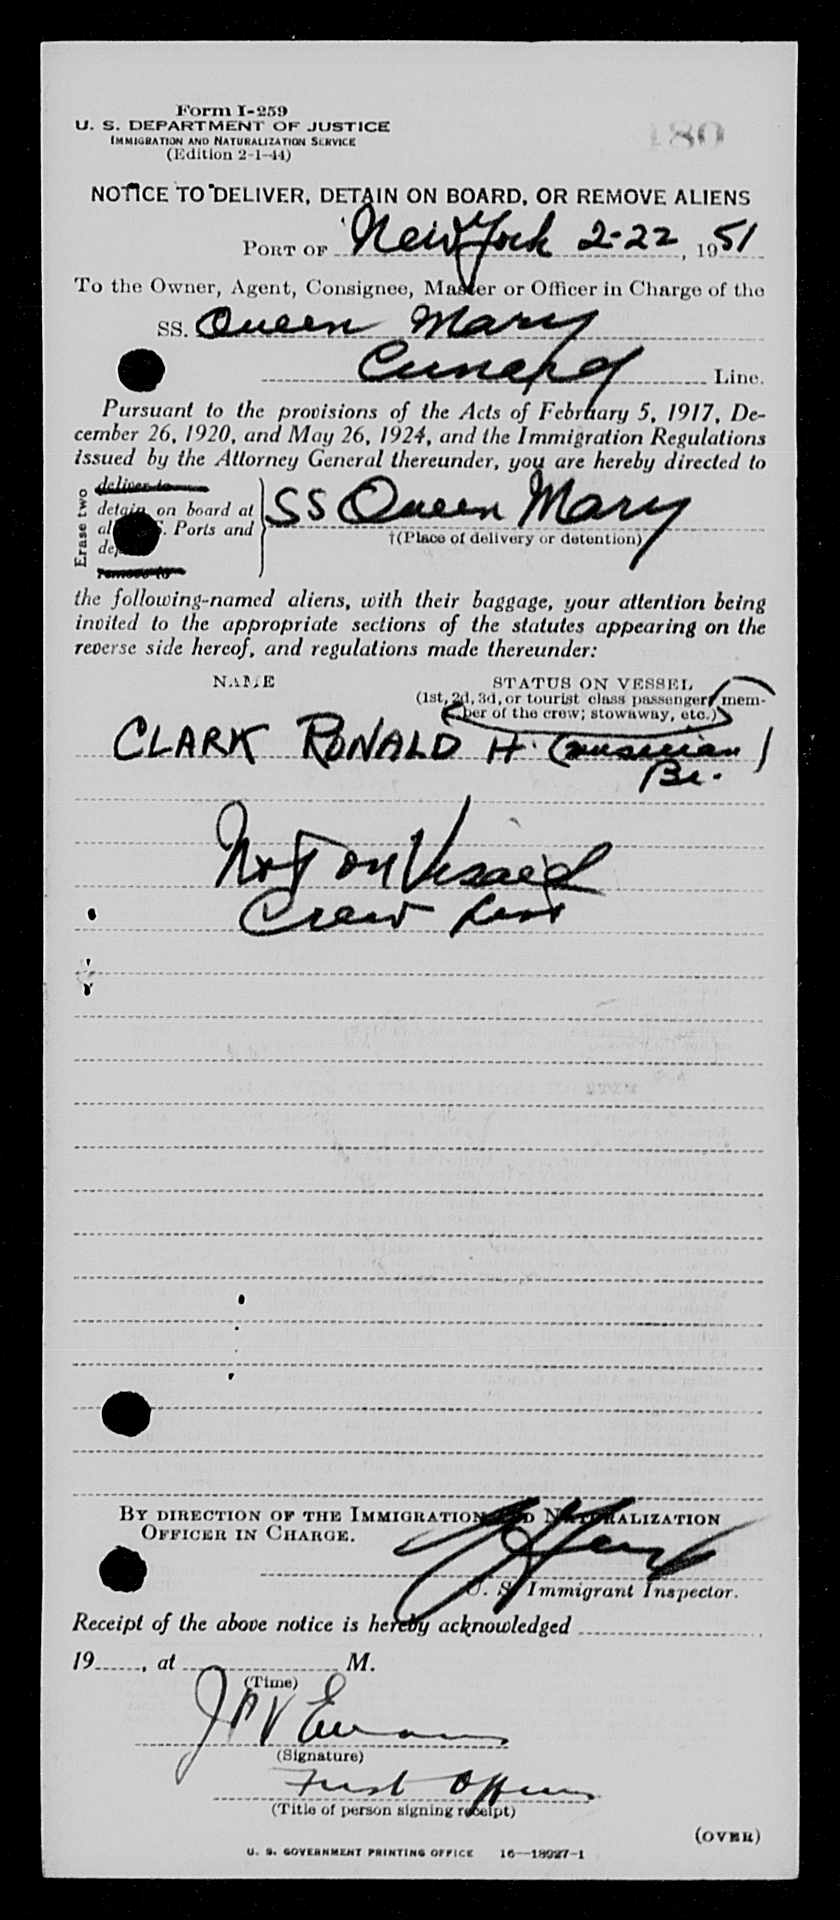 Form I-259
U. S. DEPARTMENT OF JUSTICE
IMMIGRATION AND NATURALIZATION SERVICE
(Edition 2-1-44)
180
NOTICE TO DELIVER, DETAIN ON BOARD, OR REMOVE ALIENS
PORT OF New York 2-22, 1951
To the Owner, Agent, Consignee, Master or Officer in Charge of the
SS. Queen Mary
Cunard Line.
Pursuant to the provisions of the Acts of February 5, 1917, De-
cember 26, 1920, and May 26, 1924, and the Immigration Regulations
issued by the Attorney General thereunder, you are hereby directed to
Erase two
deliver to
detain on board at
Ports and
remove to
SS Queen Mary
†(Place of delivery or detention)
the following-named aliens, with their baggage, your attention being
invited to the appropriate sections of the statutes appearing on the
reverse side hereof, and regulations made thereunder:
NAME STATUS ON VESSEL
(1st, 2d, 3d, or tourist class passenger; mem-
ber of the crew; stowaway, etc.)
CLARK RONALD H. (musician)
Br.
Not on Visaed
Crew List
BY DIRECTION OF THE IMMIGRATION AND NATURALIZATION
OFFICER IN CHARGE.
U. S. Immigrant Inspector.
Receipt of the above notice is hereby acknowledged
19 , at M.
(Time)
Evans
(Signature)
First Officer
(Title of person signing receipt)
(OVER)
U. S. GOVERNMENT PRINTING OFFICE 16—18927-1